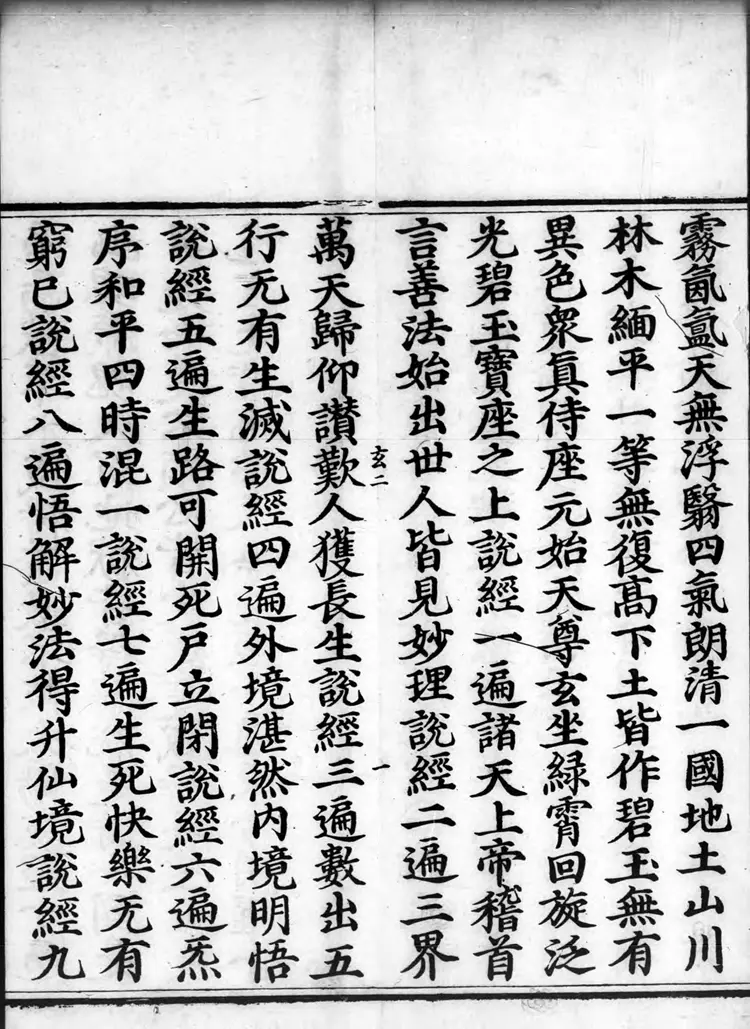 霧氤氳天無浮翳四氣朗清一國地土山川
林木緬平一等無復髙下土皆作碧玉無有
異色衆眞侍座元始天尊玄坐緑霄回旋泛
光碧玉寶座之上說經一遍諸天上帝稽首
言善法始出世人皆見妙理說經二遍三界
玄二
一
萬天歸仰讃歎人獲長生說經三遍數出五
行无有生滅說經四遍外境湛然内境明悟
說經五遍生路可開死戸立閉說經六遍炁
序和平四時混一說經七遍生死快樂无有
窮已說經八遍悟解妙法得升仙境說經九